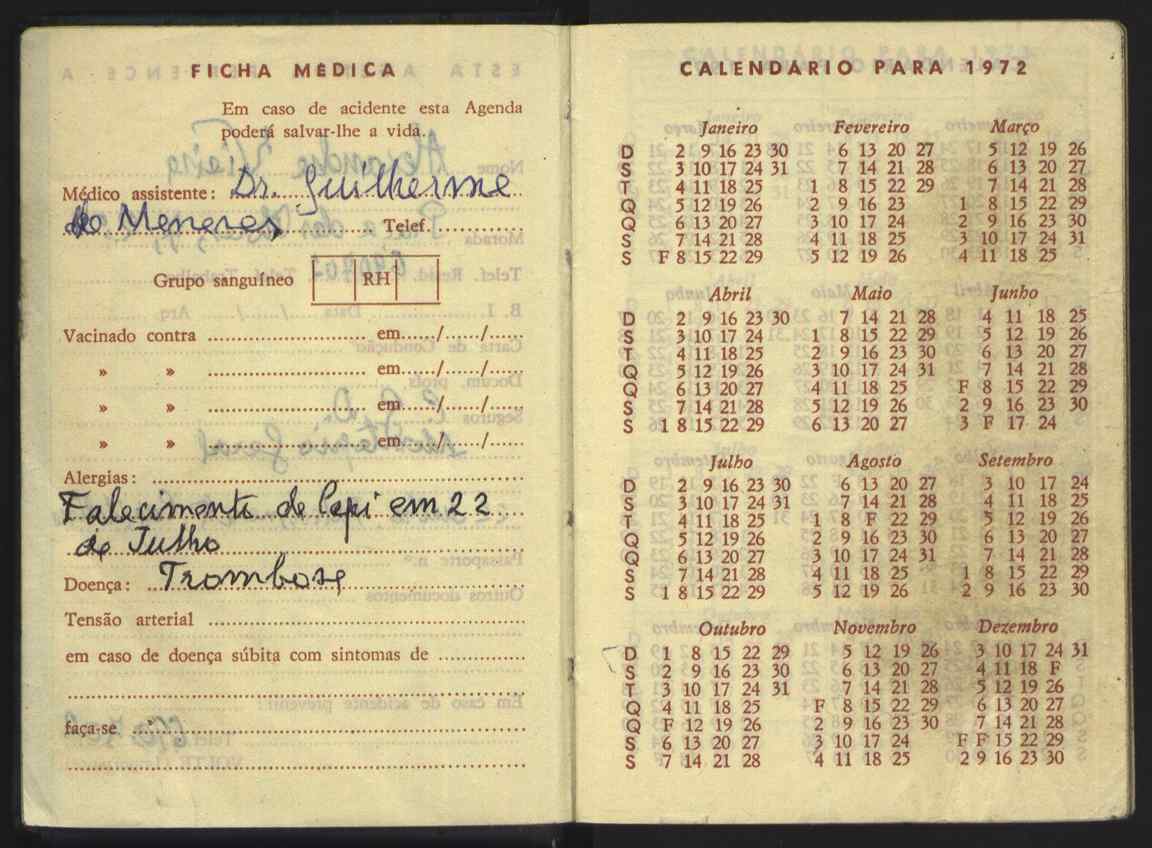 FICHA MÉDICA
Em caso de acidente esta Agenda
poderá salvar-lhe a vida.
Médico assistente: Dr. Guilherme
de Meneres Telef.
Grupo sanguíneo RH
Vacinado contra em / /
» » em / /
» » em / /
» » em / /
Alergias:
Falecimento de Papi em 22
de Julho
Doença: Trombose
Tensão arterial
em caso de doença súbita com sintomas de
faça-se
CALENDÁRIO PARA 1972
Janeiro Fevereiro Março
D 2 9 16 23 30 6 13 20 27 5 12 19 26
S 3 10 17 24 31 7 14 21 28 6 13 20 27
T 4 11 18 25 1 8 15 22 29 7 14 21 28
Q 5 12 19 26 2 9 16 23 1 8 15 22 29
Q 6 13 20 27 3 10 17 24 2 9 16 23 30
S 7 14 21 28 4 11 18 25 3 10 17 24 31
S F 8 15 22 29 5 12 19 26 4 11 18 25
Abril Maio Junho
D 2 9 16 23 30 7 14 21 28 4 11 18 25
S 3 10 17 24 1 8 15 22 29 5 12 19 26
T 4 11 18 25 2 9 16 23 30 6 13 20 27
Q 5 12 19 26 3 10 17 24 31 7 14 21 28
Q 6 13 20 27 4 11 18 25 F 8 15 22 29
S 7 14 21 28 5 12 19 26 2 9 16 23 30
S 1 8 15 22 29 6 13 20 27 3 F 17 24
Julho Agosto Setembro
D 2 9 16 23 30 6 13 20 27 3 10 17 24
S 3 10 17 24 31 7 14 21 28 4 11 18 25
T 4 11 18 25 1 8 F 22 29 5 12 19 26
Q 5 12 19 26 2 9 16 23 30 6 13 20 27
Q 6 13 20 27 3 10 17 24 31 7 14 21 28
S 7 14 21 28 4 11 18 25 1 8 15 22 29
S 1 8 15 22 29 5 12 19 26 2 9 16 23 30
Outubro Novembro Dezembro
D 1 8 15 22 29 5 12 19 26 3 10 17 24 31
S 2 9 16 23 30 6 13 20 27 4 11 18 F
T 3 10 17 24 31 7 14 21 28 5 12 19 26
Q 4 11 18 25 F 8 15 22 29 6 13 20 27
Q F 12 19 26 2 9 16 23 30 7 14 21 28
S 6 13 20 27 3 10 17 24 F F 15 22 29
S 7 14 21 28 4 11 18 25 2 9 16 23 30